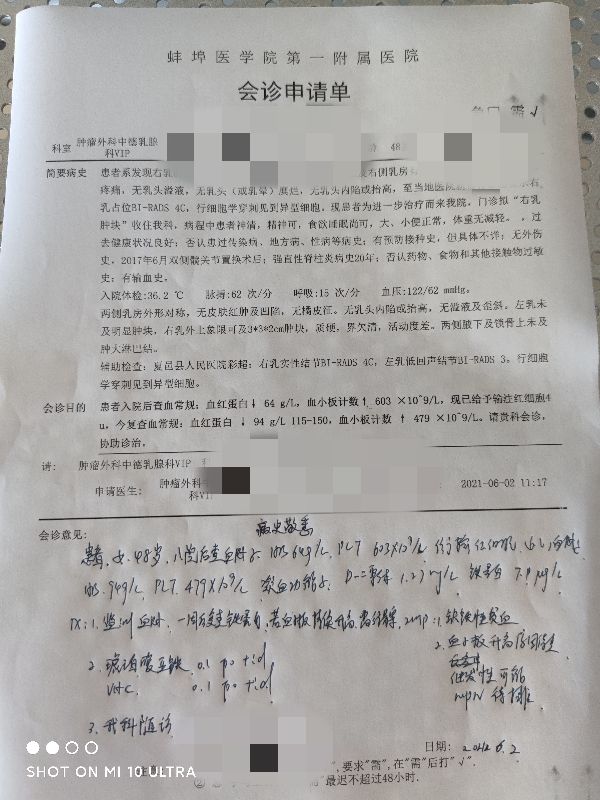 蚌埠医学院第一附属医院
会诊申请单
需√
科室 肿瘤外科中德乳腺科VIP 48
简要病史 患者系发现右乳 右侧乳房
疼痛，无乳头溢液，无乳头（或乳晕）糜烂，无乳头内陷或抬高，至当地医院 示右
乳占位BI-RADS 4C，行细胞学穿刺见到异型细胞，现患者为进一步治疗而来我院，门诊拟“右乳
肿块”收住我科，病程中患者神清，精神可，食欲睡眠尚可，大、小便正常，体重无减轻。，过
去健康状况良好；否认患过传染病、地方病、性病等病史；有预防接种史，但具体不详；无外伤
史，2017年6月双侧髋关节置换术后；强直性脊柱炎病史20年；否认药物、食物和其他接触物过敏
史；有输血史。
入院体检:36.2 ℃ 脉搏:62 次/分 呼吸:15 次/分 血压:122/62 mmHg。
两侧乳房外形对称，无皮肤红肿及凹陷，无橘皮征。无乳头内陷或抬高，无溢液及歪斜。左乳未
及明显肿块，右乳外上象限可及3*3*2cm肿块，质硬，界欠清，活动度差。两侧腋下及锁骨上未及
肿大淋巴结。
辅助检查：夏邑县人民医院彩超：右乳实性结节BI-RADS 4C，左乳低回声结节BI-RADS 3。行细胞
学穿刺见到异型细胞。
会诊目的 患者入院后查血常规：血红蛋白↓ 64 g/L，血小板计数↑ 603 ×10^9/L，现已给予输注红细胞4
u，今复查血常规：血红蛋白 ↓ 94 g/L 115-150，血小板计数 ↑ 479 ×10^9/L。请贵科会诊，
协助诊治。
请： 肿瘤外科中德乳腺科VIP 科
申请医生： 肿瘤外科中 科VIP 2021-06-02 11:17
会诊意见： 病史敬悉
患者，女，48岁，入院后查血常规 Hb 64g/L，PLT 603×10^9/L
Hb 94g/L PLT 479×10^9/L D-二聚体 1.27 mg/L 铁蛋白
1. 监测血常规，一周后复查铁蛋白， 1. 缺铁性贫血
2. 血小板升高原因待查
2. 琥珀酸亚铁 0.1 po tid
继发性可能
VitC 0.1 po tid
MPN 待排
3. 我科随诊
日期：
，要求“需”，在“需”后打“√”。
最迟不超过48小时.
SHOT ON MI 10 ULTRA